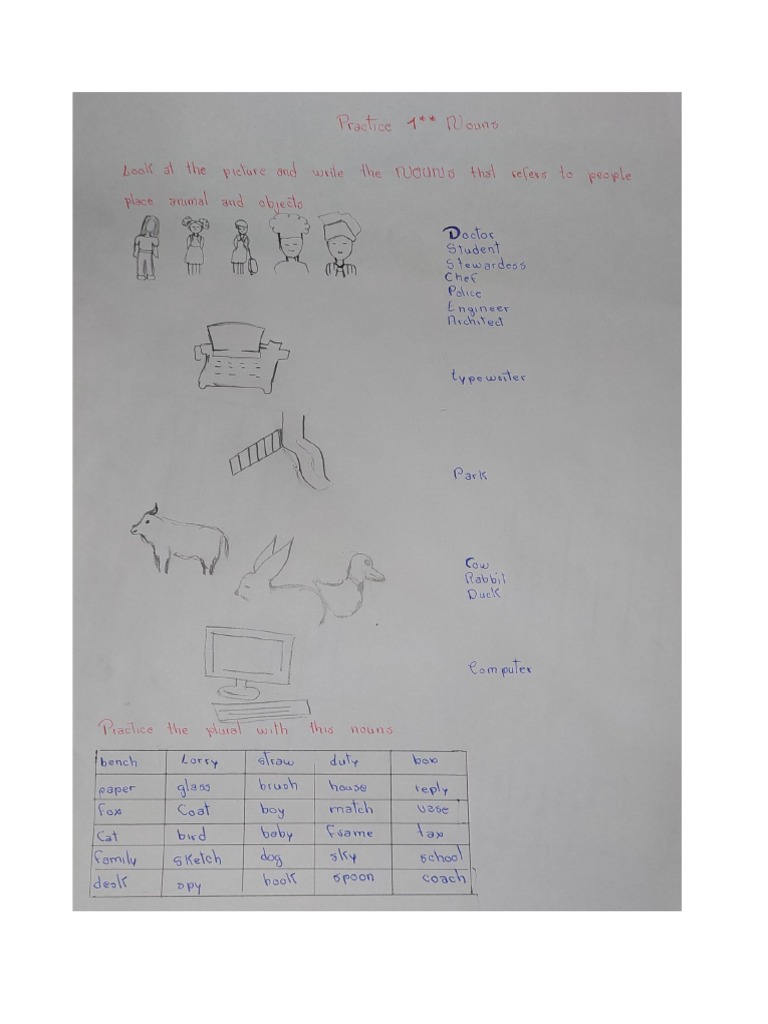 Practice 1** Nouns
Look at the picture and write the NOUNS that refers to people
place animal and objects
Doctor
Student
Stewardess
Chef
Police
Engineer
Architect
typewriter
Park
Cow
Rabbit
Duck
Computer
Practice the plural with this nouns
bench Lorry straw duty box
paper glass brush house reply
Fox Coat boy match vase
Cat bird baby Frame tax
family sketch dog sky school
desk spy book spoon coach